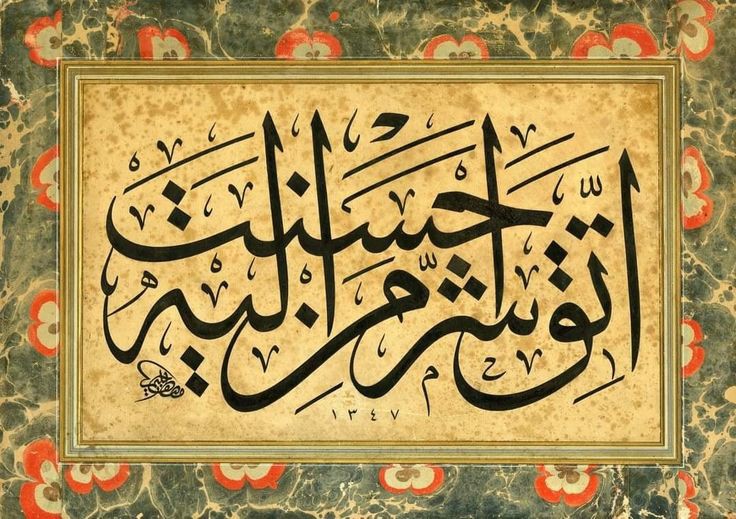 اتق شر من احسنت اليه
١٣٤٧